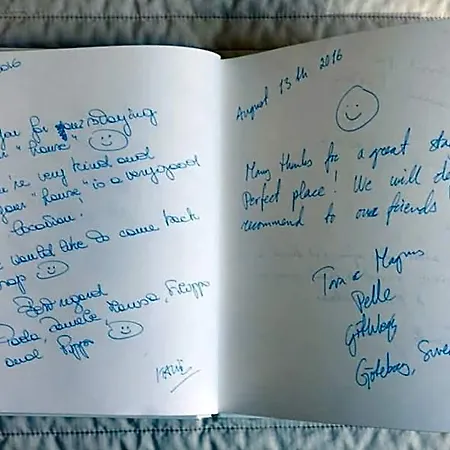 2016
you for your staying
"house"
're very kind and
your "house" is a very good
location!
would like to come back
Best regard
Paola, Daniele,
and
August 13th 2016
Many thanks for a great sta
Perfect place! We will de
recommend to our friends
Pelle
Göteborg, Swe